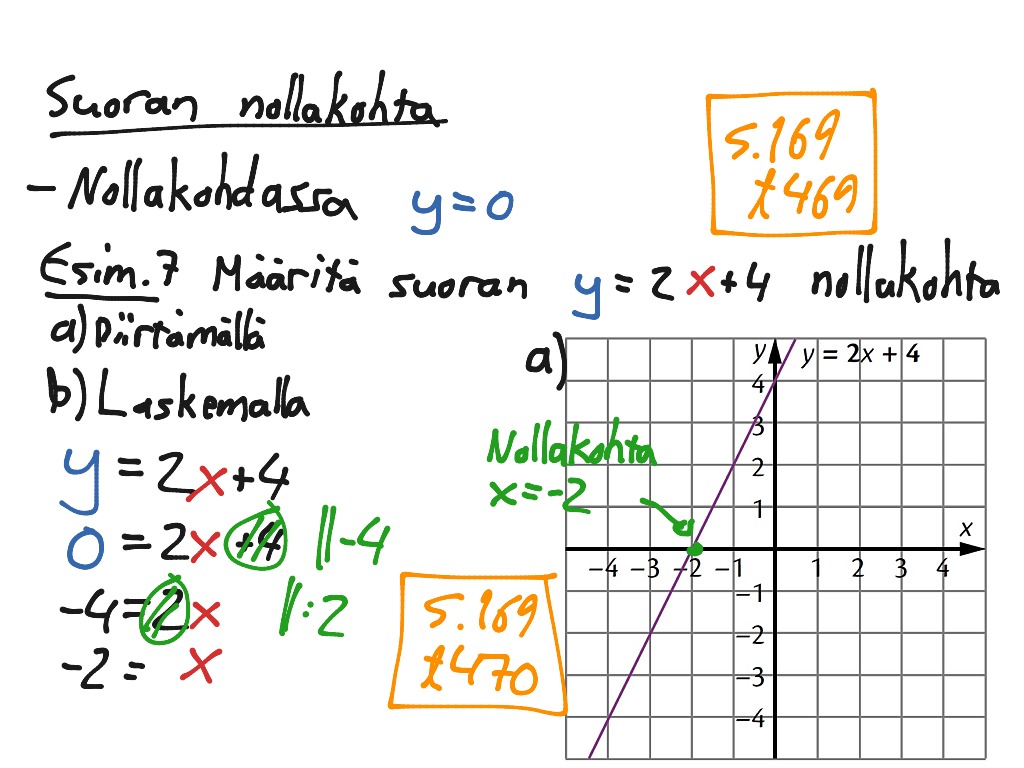 Suoran nollakohta
s.169
t469
- Nollakohdassa y=0
Esim.7 Määritä suoran y=2x+4 nollakohta
a) Piirtämällä
b) Laskemalla
y=2x+4
0=2x+4 ||-4
-4=2x ||:2
-2= x
s.169
t470
a)
Nollakohta
x=-2
y
y = 2x + 4
4
3
2
1
x
−4 −3 −2 −1 1 2 3 4
−1
−2
−3
−4